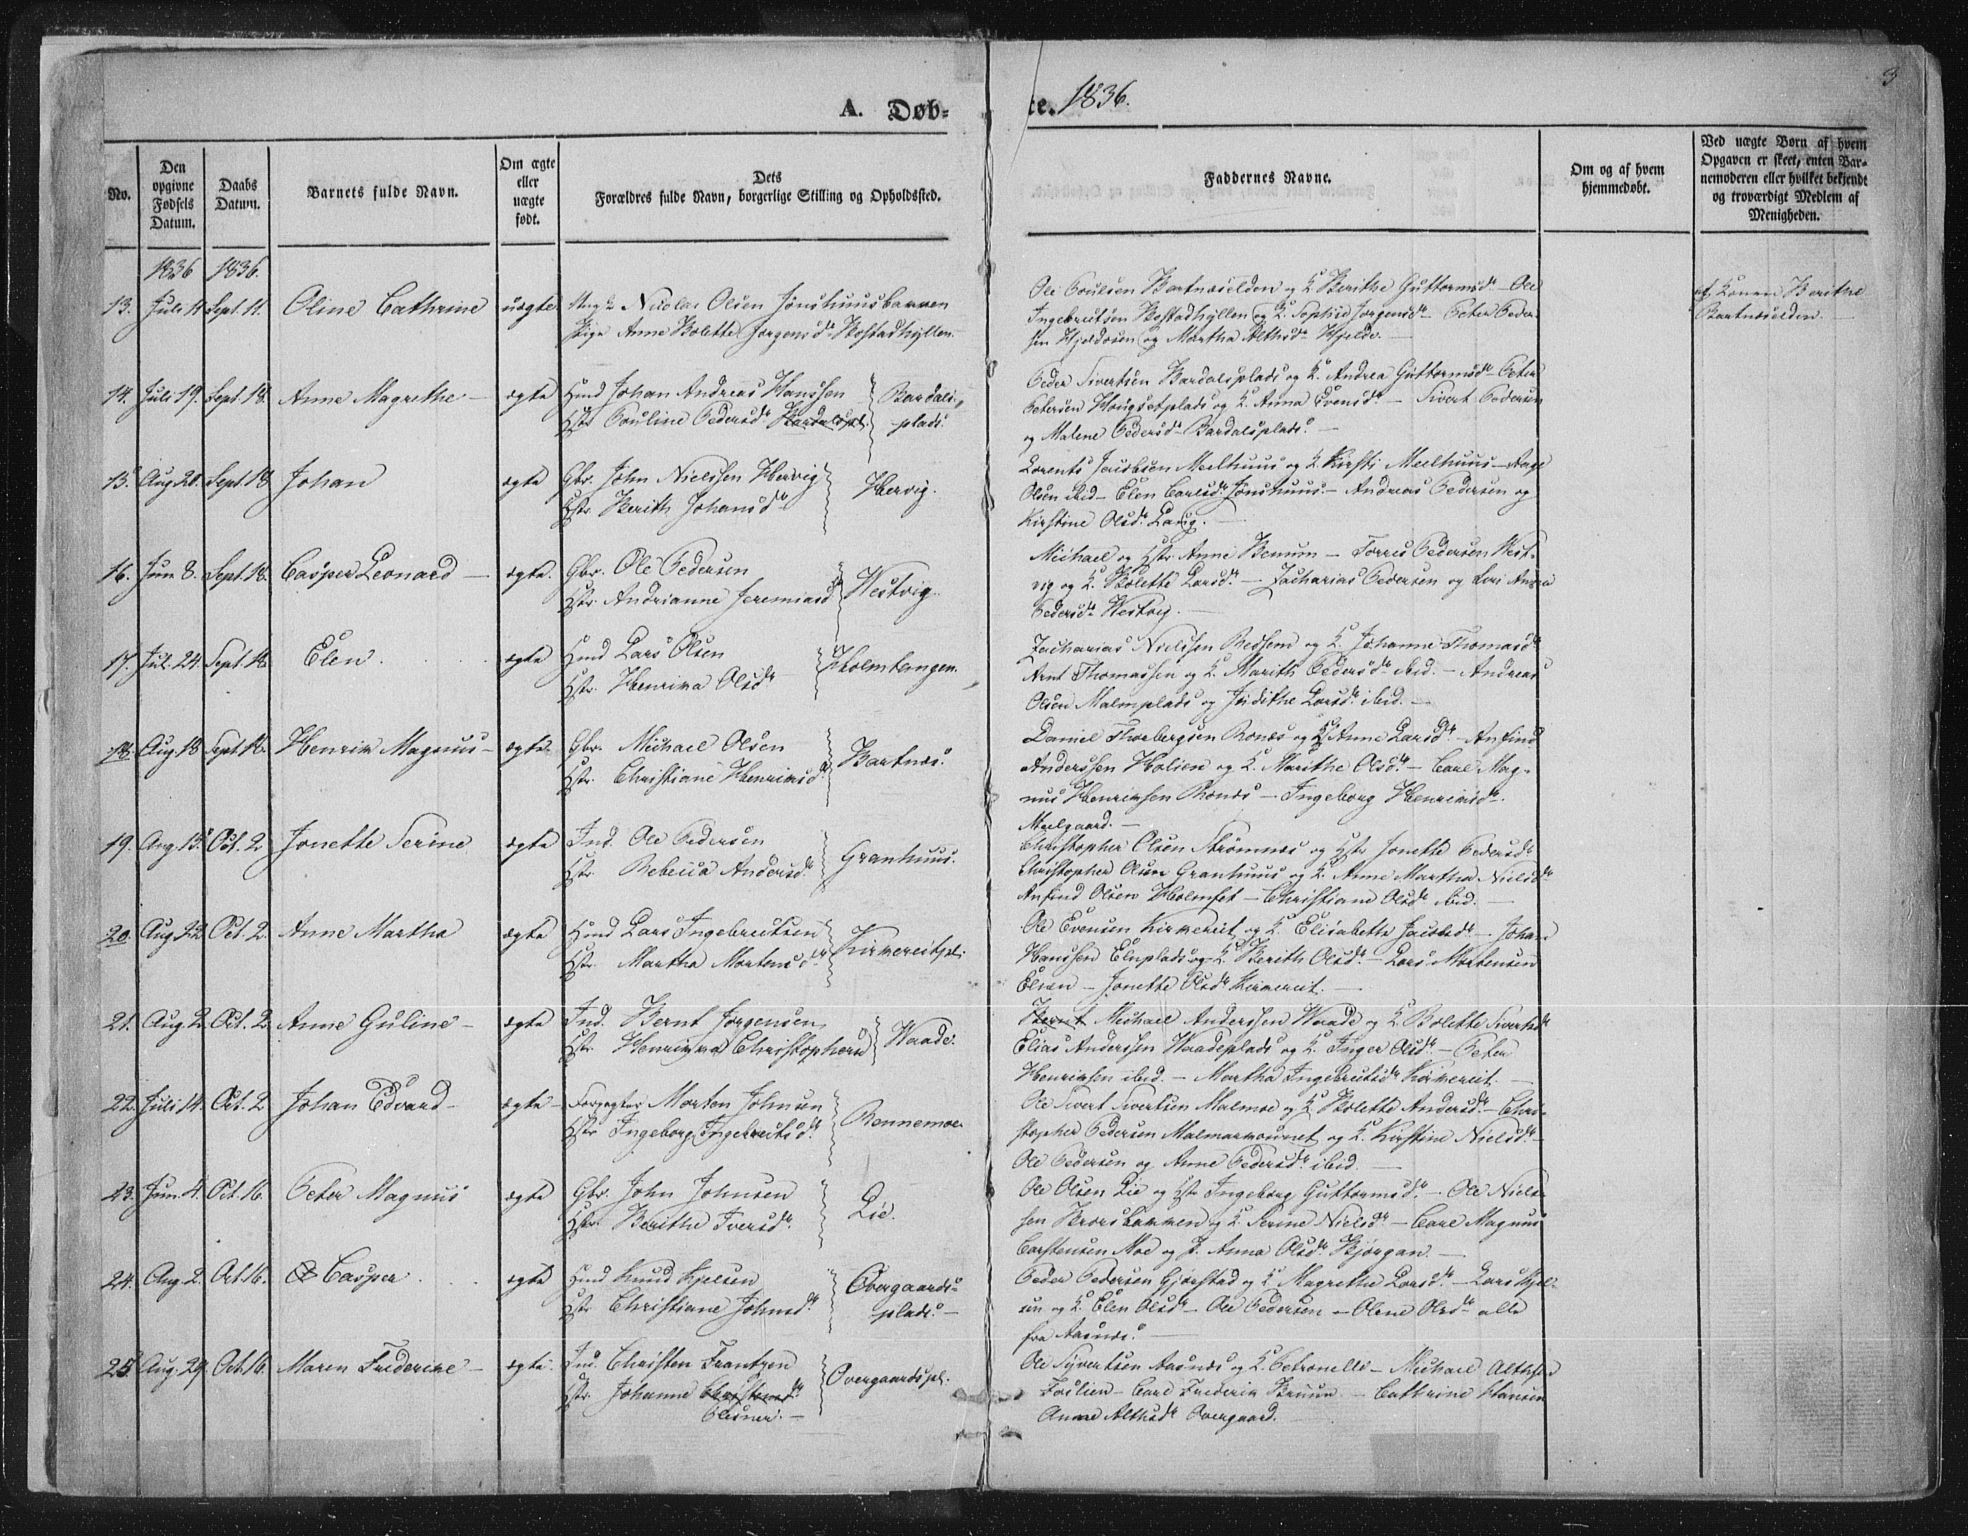 3
A. Døb-
te. 1836.
No.
Den opgivne Fødsels Datum.
Daabs Datum.
Barnets fulde Navn.
Om ægte eller uægte født.
Dets Forældres fulde Navn, borgerlige Stilling og Opholdssted.
Faddernes Navne.
Om og af hvem hjemmedøbt.
Ved uægte Børn af hvem Opgaven er skeet, enten Barnemoderen eller hvilket bekjendt og troværdigt Medlem af Menigheden.
1836 1836.
13. Juli 11. Sept. 11. Oline Cathrine uægte
Nicolai Olsen Jønshuusbakken
Pige Anne Bolette Jørgensd. Bostadhyllen
Ole Poulsen Bartnæselden og K. Berithe Guttormsd. – Ole
Ingebretsen Bostadhyllen og K. Sophie Jørgensd. Peter Peder-
sen Hjeldosen og Martha Althsd. Hjelde.
af Konen Berithe
Bartnæselden.
14. Juli 19. Sept. 18. Anne Magrethe ægte
Hmd Johan Andreas Hanssen
Hstr Pouline Pedersd. Bardalspl.
Bardals-
plads.
Peder Sivertsen Bardalsplads og K. Andrea Guttormsd. – Peter
Petersen Hougsetplads og K. Anna Evensd. – Sivert Pedersen
og Malene Pedersd. Bardalsplads.
15. Aug 20. Sept. 18 Johan ægte
Gbr. John Nielssen Hervig
Hstr. Berith Johansd.
Hervig.
Lorents Jacobsen Meelhuus og K. Kirsti Meelhuus – Aage
Olsen ibid – Elen Carlsd. Jønshuus. – Andreas Pedersen og
Kirstine Olsd. Lang.
16. Jun 8. Sept. 18. Casper Leonard ægte.
Gbr. Ole Pedersen
Hstr. Andrianne Jeremiasd
Westvig.
Michael og Hstr Anne Benum – Torris Pedersen West-
vig og K. Bolette Larsd. – Zacharias Pedersen og
Pedersd. Westvig.
17. Jul. 24. Sept. 18. Elen. ægte
Hmd Lars Olsen
Hstr. Henrika Olsd
Holmtangen.
Zacharias Nielssen Redsem og K. Johanne Thomasd.
Arnt Thomassen og K. Marith Pedersd. ibid. – Andreas
Olsen Malmplads og Judithe Larsd. ibid.
18. Aug 18 Sept. 18. Henrik Magnus ægte
Gbr. Michael Olsen
Hstr. Christiane Henriksd.
Bartnæs.
Daniel Thorbergsen Ronæs og K. Anne Larsd. – Anfind
Anderssen Holien og K. Marithe Olsd. – Carl Mag-
nus Henriksen Ronæs – Ingeborg Henriksd.
Meelgaard.
19. Aug 15. Oct. 2 Jonette Serine ægte
Ind. Ole Pedersen
Hstr. Rebecca Andersd.
Granhuus.
Christopher Olsen Strømnæs og Hstr Jonette Pedersd.
Christopher Olsen Granhuus og K. Anne Martha Nielsd.
Anfind Olsen Holmset – Christiane Olsd. ibid.
20. Aug 22 Oct. 2. Anne Martha ægte
Hmd Lars Ingebretsen
Hstr. Martha Mortensd.
Kirkereitpl.
Ole Evensen Kirkereit og K. Elisabeth Jacobsd. – Johan
Hanssen Elnplads og K. Berith Olsd. – Lars Mortensen
– Jonette Olsd. Kirkereit.
21. Aug 2. Oct. 2 Anne Guline ægte
Ind. Bernt Jørgensen
Hstr. Henrikka Christophersd
Waade.
Bernt Michael Anderssen Waade og K. Bolette Sivertsd.
Elias Anderssen Waadeplads og K. Inger Olsd. – Peter
Henriksen ibid. – Martha Ingebretsd. Kirkereit.
22. Juli 14. Oct. 2 Johan Edvard ægte
Forpagter Morten Johnsen
Hstr. Ingeborg Ingebretsd.
Rennemoe
Ole Sivert Sivertsen Malmoe og K. Bolette Andersd. – Chri-
stopher Pedersen og K. Kirstine Nielsd. –
Ole Pedersen og Anne Pedersd. ibid.
23. Jun. 4. Oct. 16. Peter Magnus ægte
Gbr. John Johnsen
Hstr. Berithe Iversd.
Lie.
Ole Olsen Lie og Hstr Ingeborg Guttormsd. – Ole Niels-
sen og K. Serine Nielsd. – Carl Magnus
Carstensen Moe og P. Anna Olsd. Bjørgan.
24. Aug. 2. Oct. 16. Casper ægte
Hmd Knud Kjelsen
Hstr. Christiane Johnsd.
Overgaards-
plads.
Peder Pedersen Gjørstad og K. Magrethe Larsd. – Lars Kjel-
sen og K. Elen Olsd. – Ole Pedersen – Olene Olsd. alle
fra Aasnæs.
25. Aug. 29. Oct 16. Maren Friderike ægte.
Ind. Christen Frantzen
Hstr. Johanne Christensd.
Overgaardspl.
Ole Syvertsen Aasnæs og K. Petronelle – Michael Althsen
Foslien – Carl Frederik Bruun – Cathrine Hansen
Anne Althsd. Overgaard.